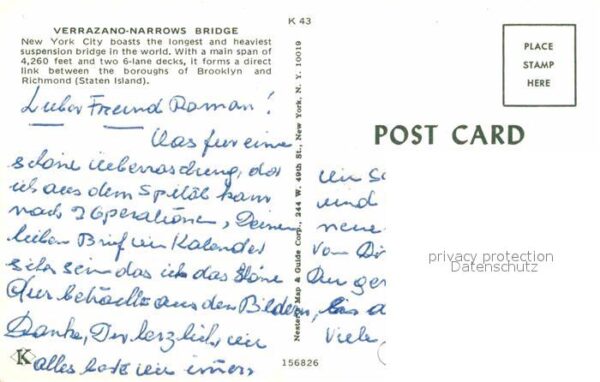 K 43
VERRAZANO-NARROWS BRIDGE
New York City boasts the longest and heaviest
suspension bridge in the world. With a main span of
4,260 feet and two 6-lane decks, it forms a direct
link between the boroughs of Brooklyn and
Richmond (Staten Island).
Lieber Freund Roman!
Was für eine
schöne Ueberraschung, das
ich aus dem Spital kam
nach 2 Operationen, Deinen
lieben Brief im Kalender
das ich das
aus den Bildern, bis
Danke, Dir herzlich, wie
alles
Nester's Map & Guide Corp., 244 W. 49th St., New York, N. Y. 10019
156826
K
PLACE
STAMP
HERE
POST CARD
und
neue
von
viele,
privacy protection
Datenschutz